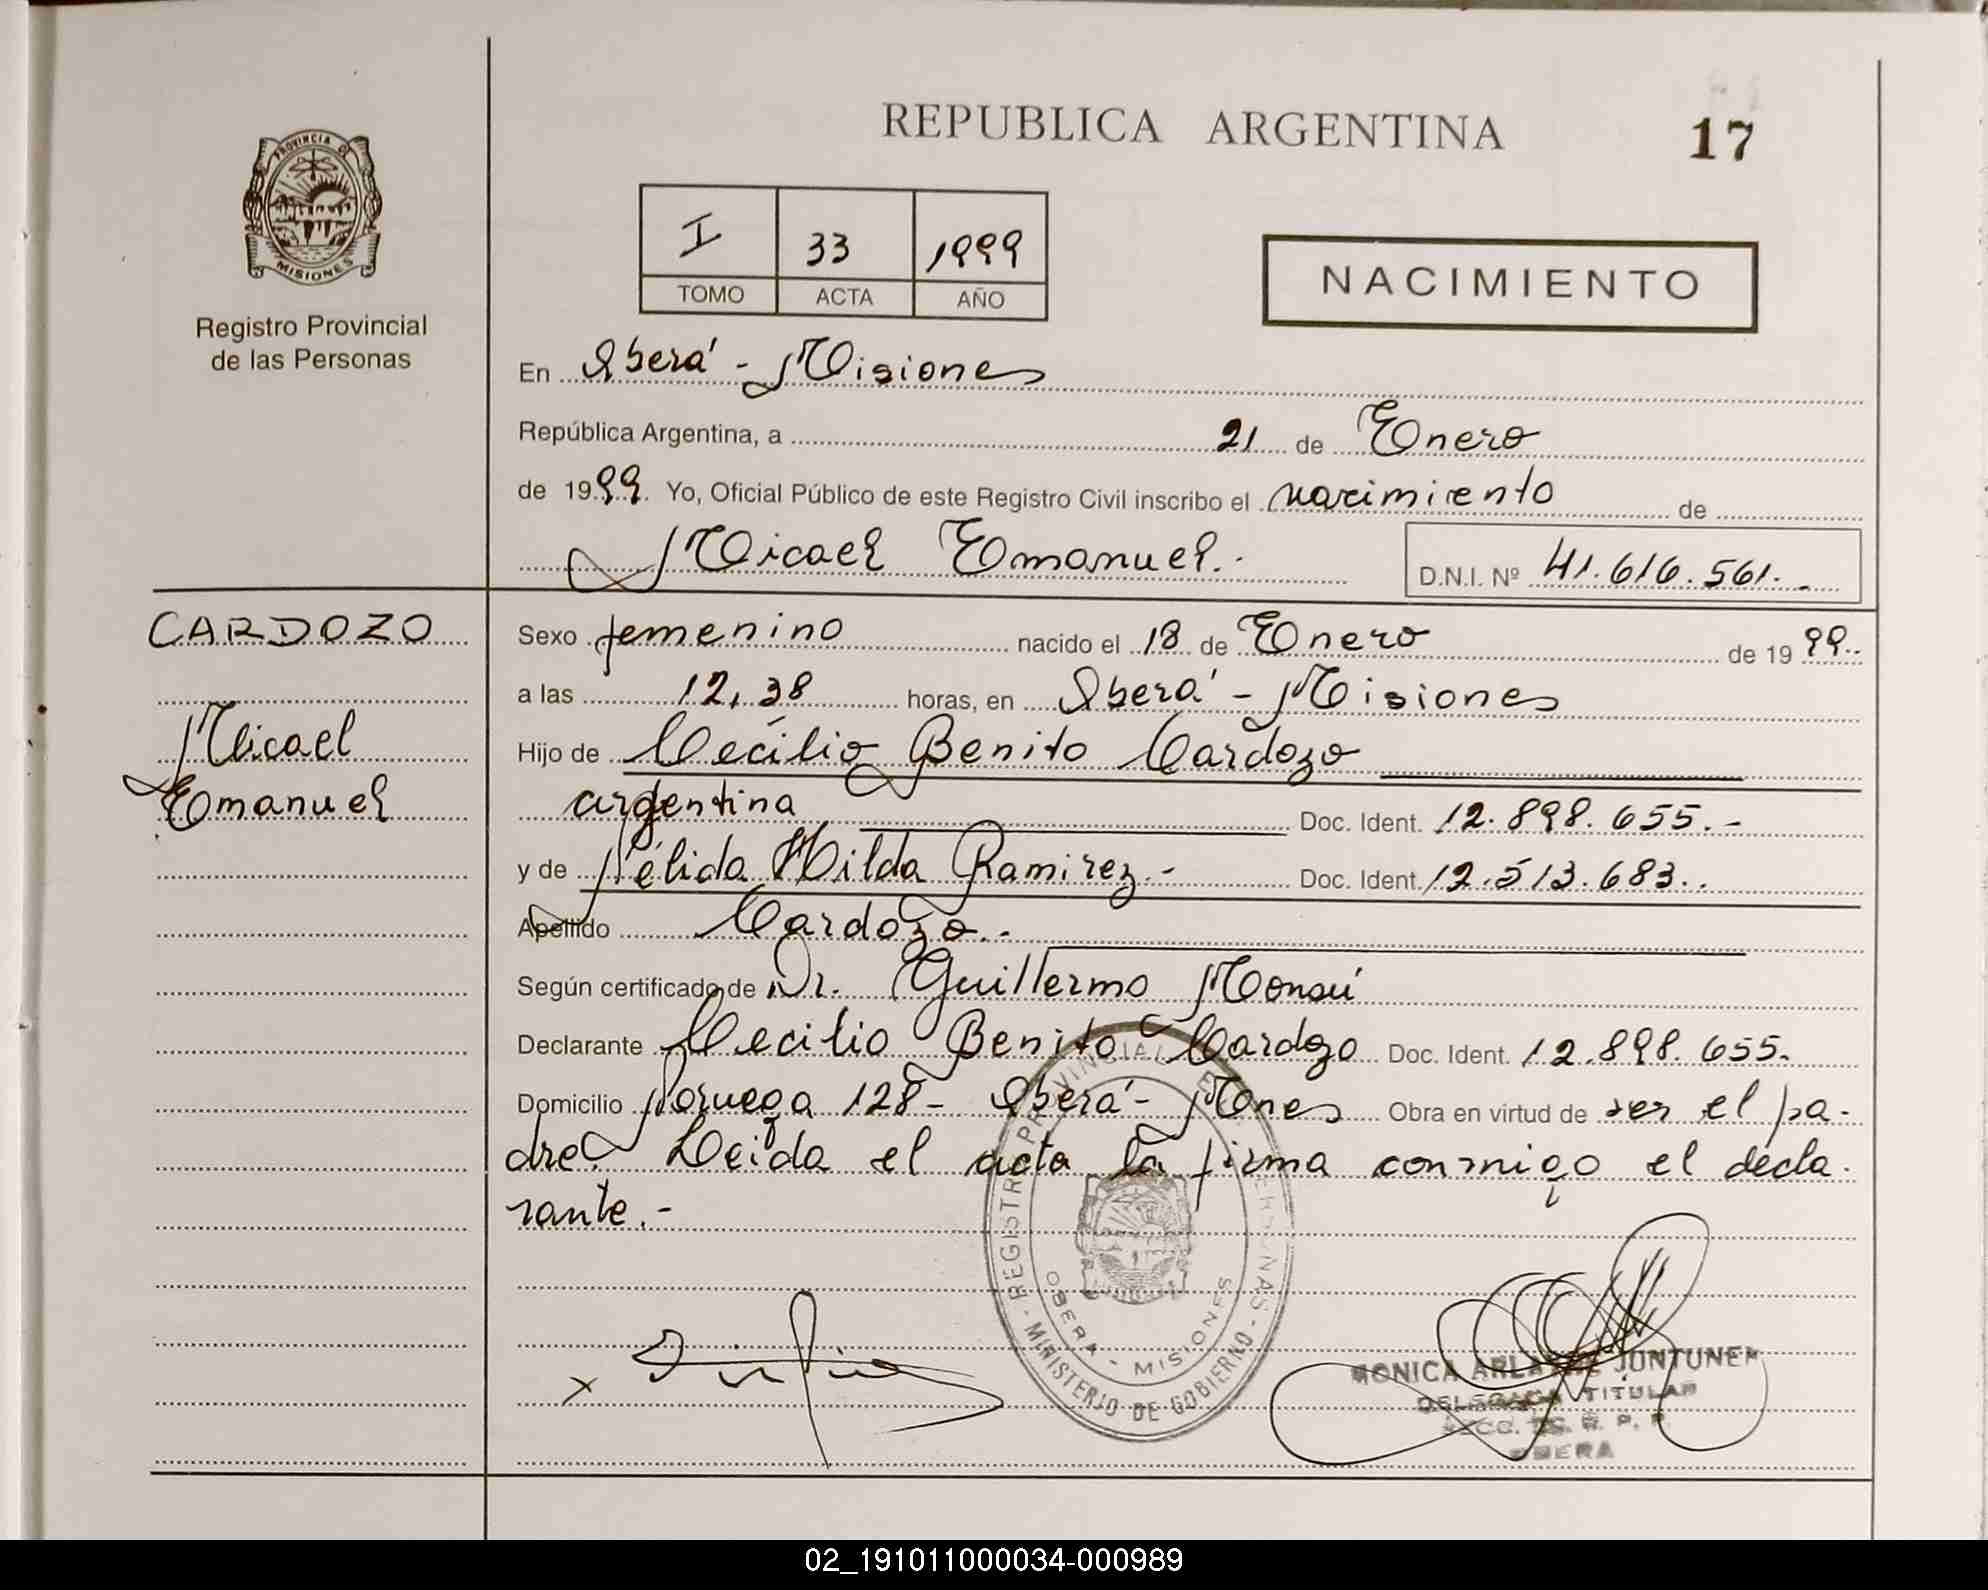 REPUBLICA ARGENTINA
17
PROVINCIA DE
MISIONES
Registro Provincial
de las Personas
I 33 1999
TOMO ACTA AÑO
NACIMIENTO
En Oberá - Misiones
República Argentina, a 21 de Enero
de 1999. Yo, Oficial Público de este Registro Civil inscribo el nacimiento de
Micael Emanuel.-
D.N.I. Nº 41.616.561.-
CARDOZO
Micael
Emanuel
Sexo femenino nacido el 18 de Enero de 1999.
a las 12,38 horas, en Oberá - Misiones
Hijo de Cecilio Benito Cardozo
argentina Doc. Ident. 12.898.655.-
y de Nélida Hilda Ramirez.- Doc. Ident. 12.513.683..
Apellido Cardozo.-
Según certificado de Dr. Guillermo
Declarante Cecilio Benito Cardozo Doc. Ident. 12.898.655.
Domicilio Noruega 128 - Oberá - Mones Obra en virtud de ser el pa-
dre. Leida el acta la firma conmigo el decla-
rante.-
REGISTRO PROVINCIAL DE LAS PERSONAS - MINISTERIO DE GOBIERNO -
OBERA - MISIONES
x
MONICA JUNTUNEN
DELEGADA TITULAR
OBERA
02_191011000034-000989